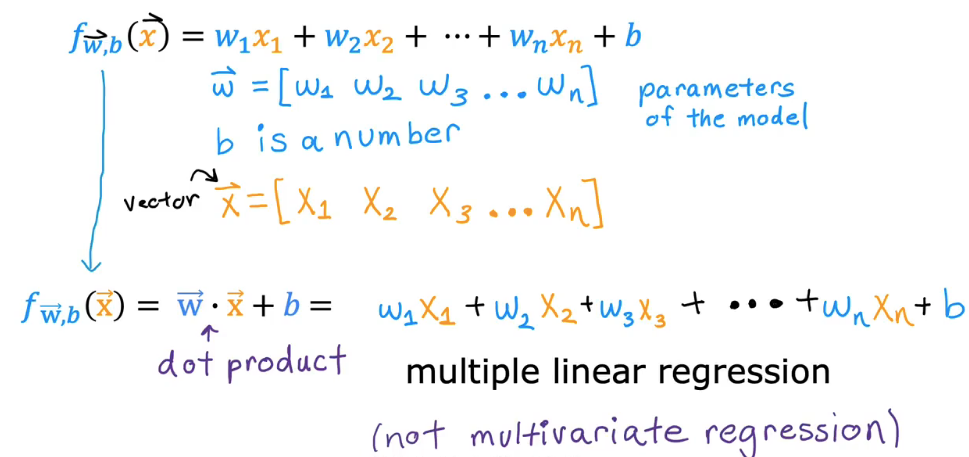 f_w⃗,b(x⃗) = w₁x₁ + w₂x₂ + ⋯ + wₙxₙ + b
w⃗ = [w₁ w₂ w₃ ... wₙ] parameters
of the model
b is a number
vector x⃗ = [x₁ x₂ x₃ ... xₙ]
f_w⃗,b(x⃗) = w⃗ · x⃗ + b = w₁x₁ + w₂x₂ + w₃x₃ + ... + wₙxₙ + b
dot product
multiple linear regression
(not multivariate regression)